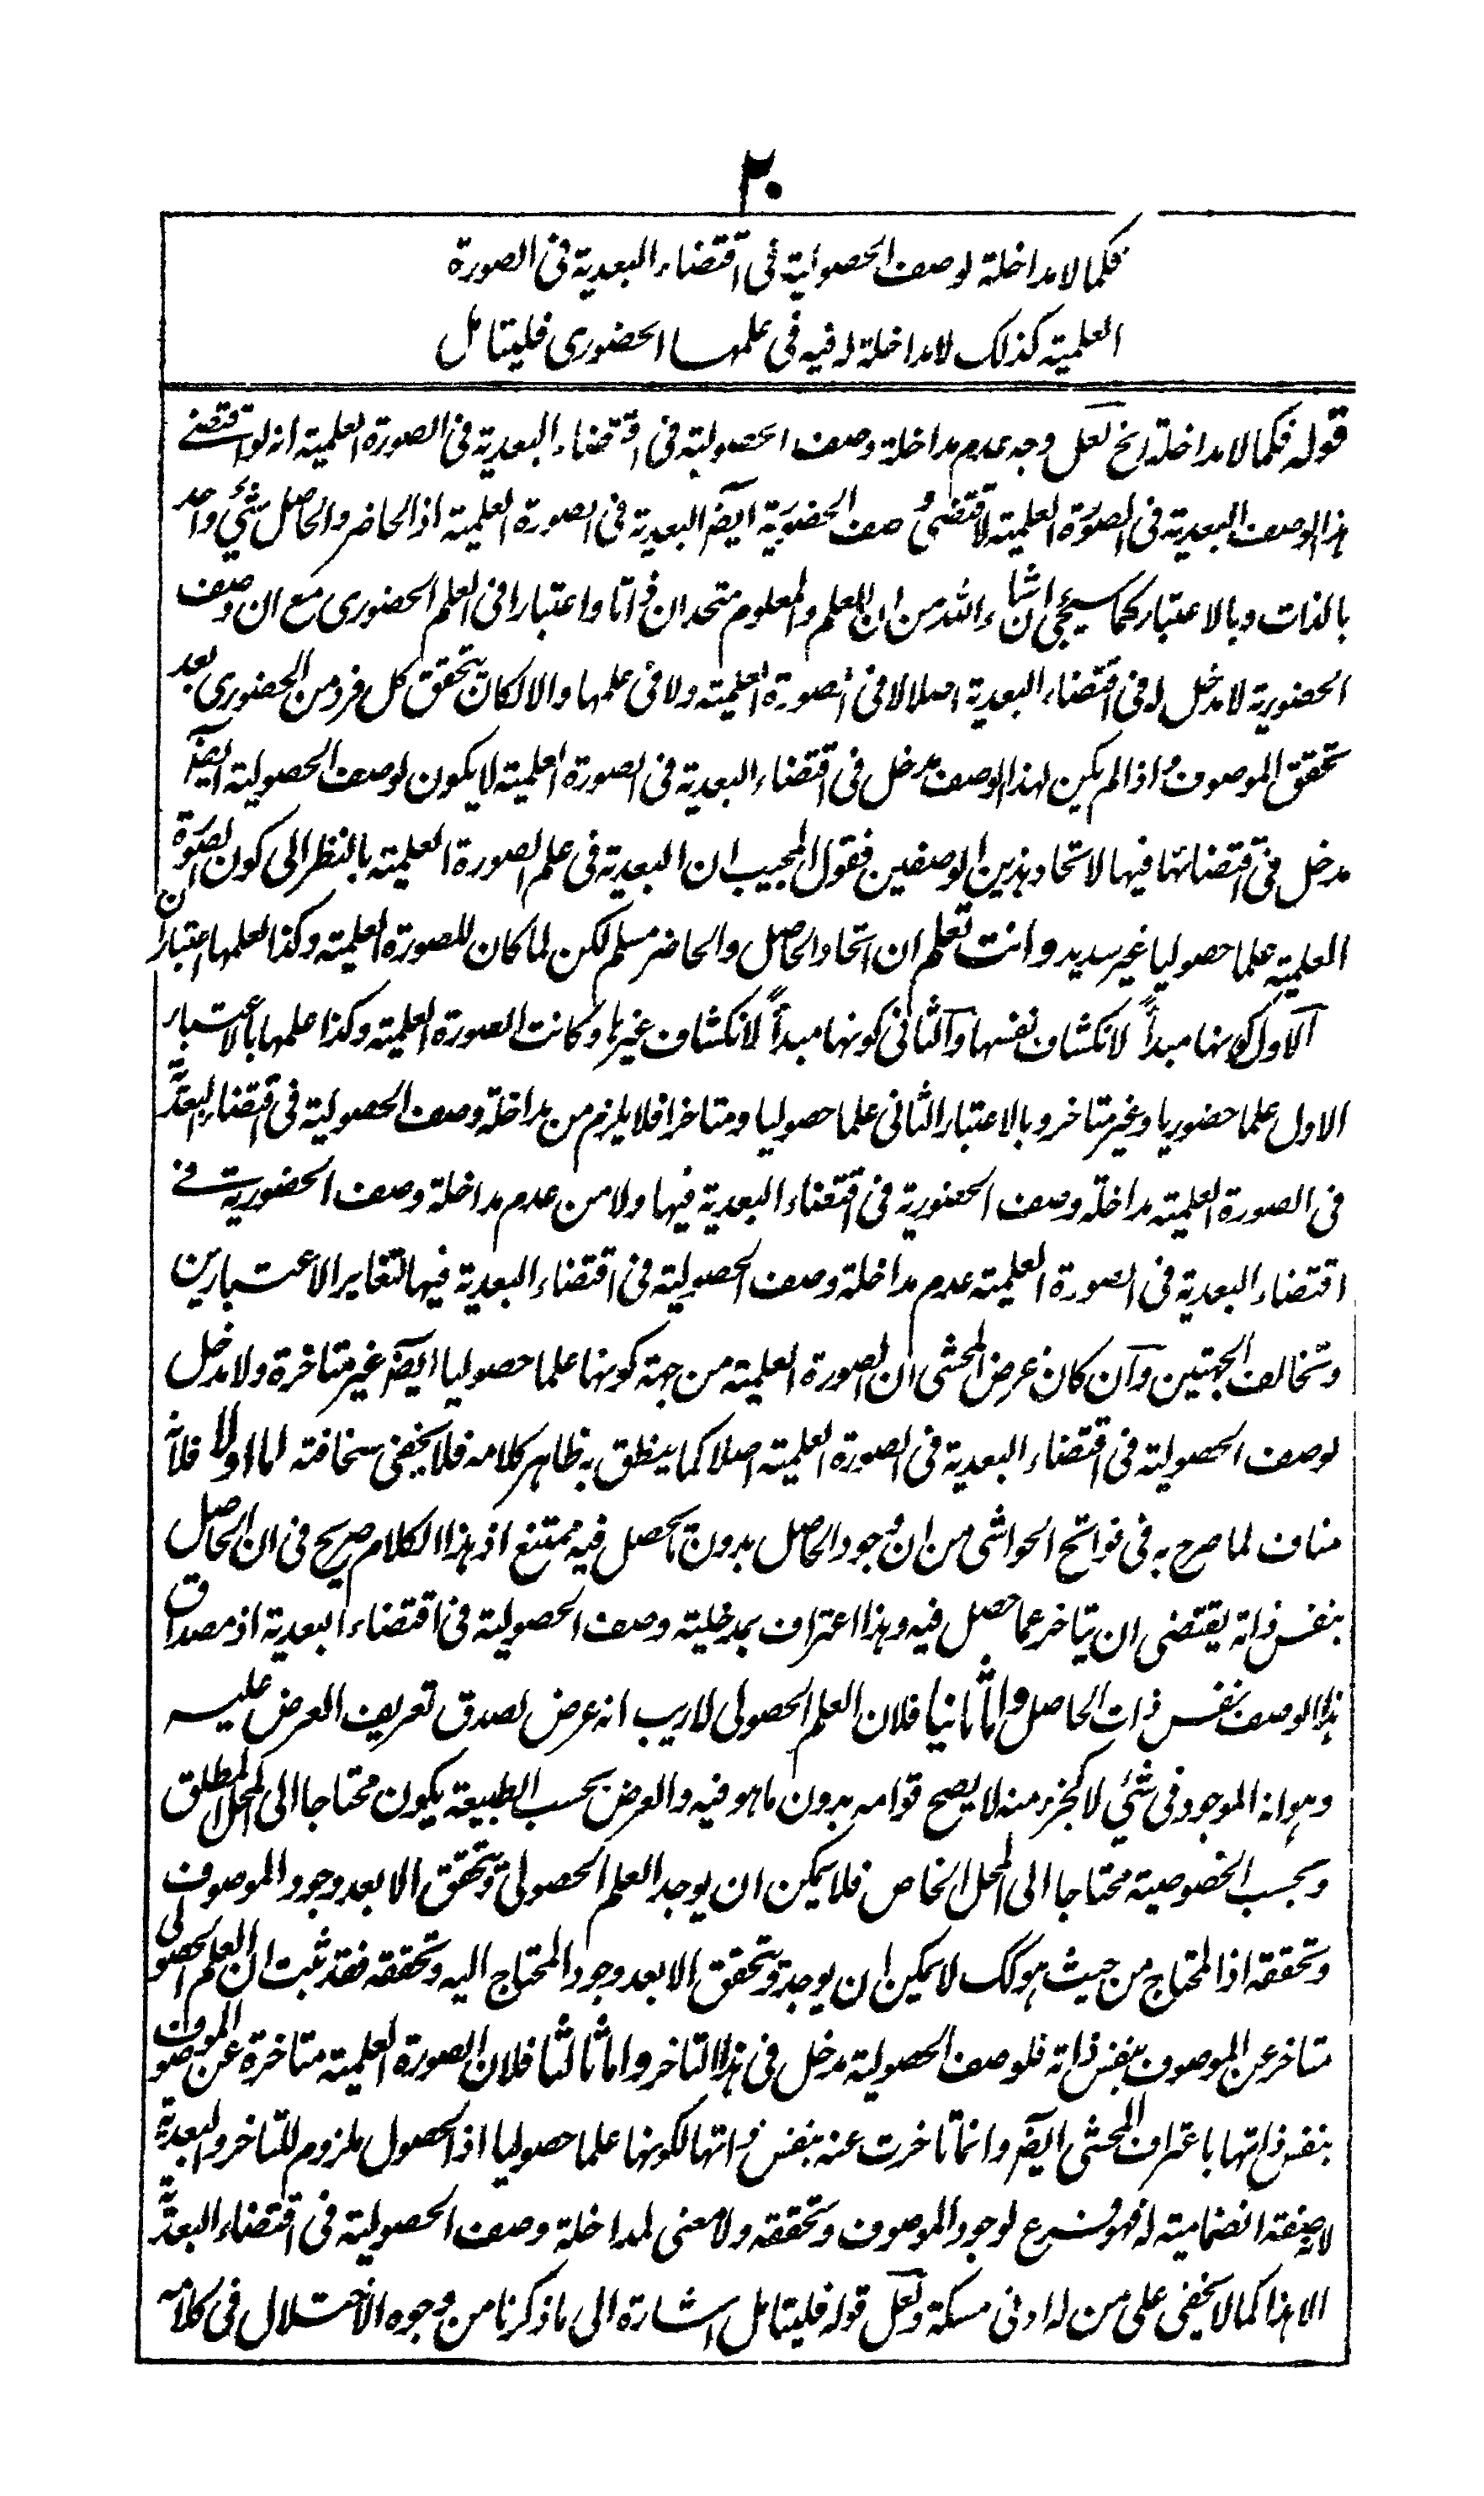 ٢٠
فكما لا مداخلة لوصف الحصولية فى اقتضاء البعدية فى الصورة
العلمية كذلك لا مداخلة له فيه فى علمها الحضورى فليتامل
قوله فكما لا مداخلة الخ لعل وجه عدم مداخلة وصف الحصولية فى اقتضاء البعدية فى الصورة العلمية انه لو اقتضے
هذا الوصف البعدية فى الصورة العلمية لاقتضى وصف الحضورية ايضا البعدية فى الصورة العلمية اذ الحاضر والحاصل شئ واحد
بالذات وبالاعتبار كما سيجئ ان شاء الله من ان العلم والمعلوم متحدان ذاتا واعتبارا فى العلم الحضورى مع ان وصف
الحضورية لا مدخل له فى اقتضاء البعدية اصلا لا فى الصورة العلمية ولا فى علمها والا لكان تحقق كل فرد من الحضورى بعد
تحقق الموصوف واذا لم يكن لهذا الوصف مدخل فى اقتضاء البعدية فى الصورة العلمية لا يكون لوصف الحصولية ايضا
مدخل فى اقتضائها فيها لاتحاد هذين الوصفين فقول المجيب ان البعدية فى علم الصورة العلمية بالنظر الى كون الصورة
العلمية علما حصوليا غير سديد وانت تعلم ان اتحاد الحاصل والحاضر مسلم لكن لما كان للصورة العلمية وكذا لعلمها اعتباران
الاول كونها مبدأ لانكشاف نفسها والثانى كونها مبدأ لانكشاف غيرها وكانت الصورة العلمية وكذا علمها بالاعتبار
الاول علما حضوريا وغير متاخر وبالاعتبار الثانى علما حصوليا ومتاخرا فلا يلزم من مداخلة وصف الحصولية فى اقتضاء البعدية
فى الصورة العلمية مداخلة وصف الحضورية فى اقتضاء البعدية فيها ولا من عدم مداخلة وصف الحضورية فے
اقتضاء البعدية فى الصورة العلمية عدم مداخلة وصف الحصولية فى اقتضاء البعدية فيها لتغاير الاعتبارين
وتخالف الجهتين وان كان غرض المحشى ان الصورة العلمية من جهة كونها علما حصوليا ايضا غير متاخرة ولا مدخل
لوصف الحصولية فى اقتضاء البعدية فى الصورة العلمية اصلا كما ينطق به ظاهر كلامه فلا يخفى سخافته اما اولا فلانه
مناف لما صرح به فى فواتح الحواشى من ان وجود الحاصل بدون ما يحصل فيه ممتنع اذ هذا الكلام صريح فى ان الحاصل
بنفس ذاته يقتضى ان يتاخر عما حصل فيه وهذا اعتراف بمدخلية وصف الحصولية فى اقتضاء البعدية اذ مصداق
هذا الوصف نفس ذات الحاصل واما ثانيا فلان العلم الحصولى لا ريب انه عرض لصدق تعريف العرض عليه
وهو انه الموجود فى شئ لا كجزء منه لا يصح قوامه بدون ما هو فيه والعرض بحسب الطبيعة يكون محتاجا الى المحل المطلق
وبحسب الخصوصية محتاجا الى المحل الخاص فلا يمكن ان يوجد العلم الحصولى ويتحقق الا بعد وجود الموصوف
وتحققه اذ المحتاج من حيث هو كك لا يمكن ان يوجد ويتحقق الا بعد وجود المحتاج اليه وتحققه فقد ثبت ان العلم الحصولى
متاخر عن الموصوف بنفس ذاته فلوصف الحصولية مدخل فى هذا التاخر واما ثالثا فلان الصورة العلمية متاخرة عن الموصوف
بنفس ذاتها باعتراف المحشى ايضا وانما تاخرت عنه بنفس ذاتها لكونها علما حصوليا اذ الحصول ملزوم للتاخر والبعدية
لا صفة انضمامية له فهو فرع لوجود الموصوف وتحققه ولا معنى لمداخلة وصف الحصولية فى اقتضاء البعدية
الا هذا كما لا يخفى على من له ادنى مسكة ولعل قوله فليتامل اشارة الى ما ذكرنا من وجوه الاختلال فى كلامه